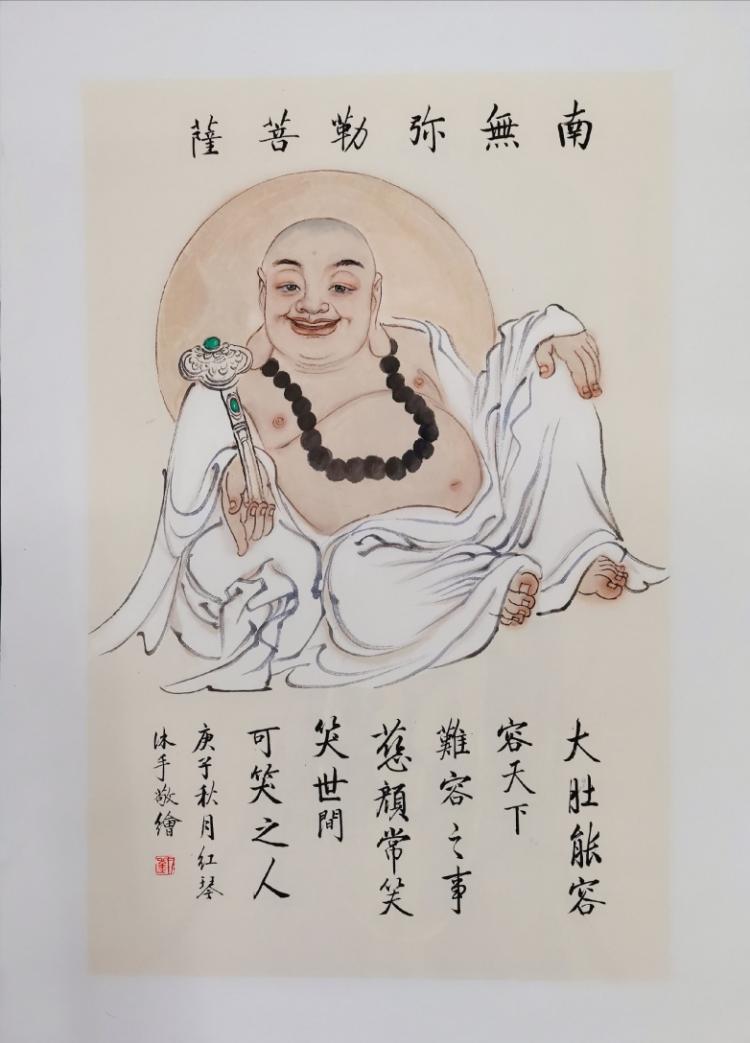 南無弥勒菩薩
大肚能容
容天下
難容之事
慈顏常笑
笑世間
可笑之人
庚子秋月红琴
沐手敬繪